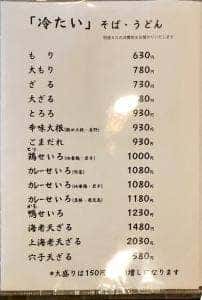 「冷たい」そば・うどん
もり 630円
大もり 780円
ざる 730円
大ざる 880円
とろろ 930円
辛味大根 930円
ごまだれ 930円
とり
鶏せいろ 1000円
カレーせいろ 1080円
カレーせいろ 1080円
カレーせいろ 1180円
かも
鴨せいろ 1230円
海老天ざる 1480円
上海老天ざる 2030円
穴子天ざる 580円
*大盛りは150円 増しになります